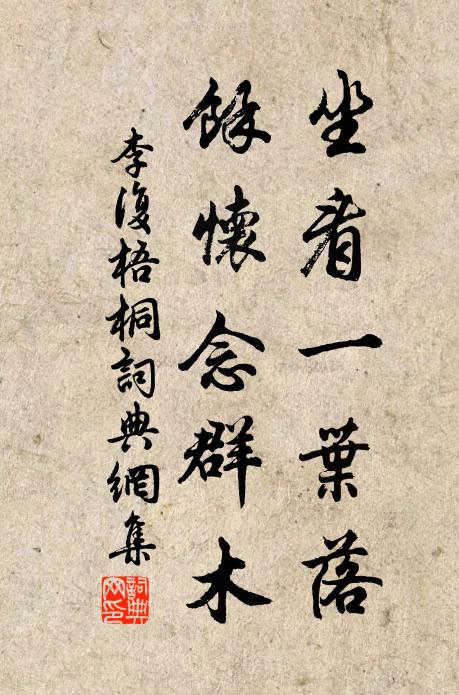 坐看一葉落
餘懷念群木
李復梧桐詞典網集
詞典网印